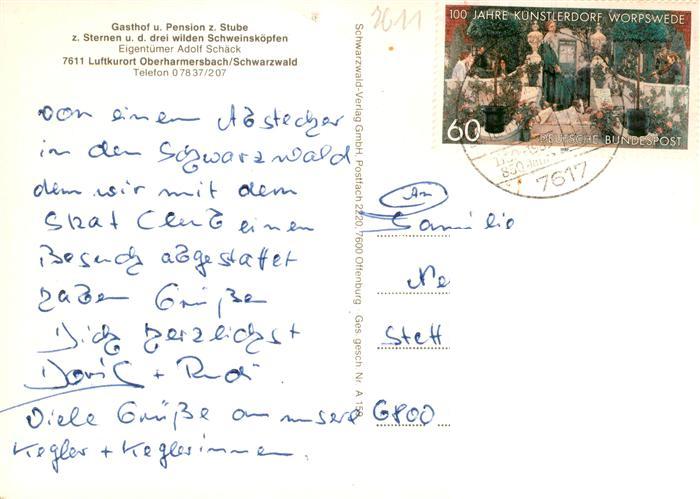 Gasthof u. Pension z. Stube
z. Sternen u. d. drei wilden Schweinsköpfen
Eigentümer Adolf Schäck
7611 Luftkurort Oberharmersbach/Schwarzwald
Telefon 0 78 37/2 07
von einem Abstecher
in den Schwarzwald
dem wir mit dem
Skat Club einen
Besuch abgestattet
haben Grüßen
Dich herzlichst
Doris + Rudi.
Viele Grüße an unsere
Kegler + Keglerinnen.
Schwarzwald-Verlag GmbH, Postfach 2220, 7600 Offenburg Ges. gesch. Nr. A 159
3611
100 JAHRE KÜNSTLERDORF WORPSWEDE
60
DEUTSCHE BUNDESPOST
7617
An
Familie
Ne
Stett
6800